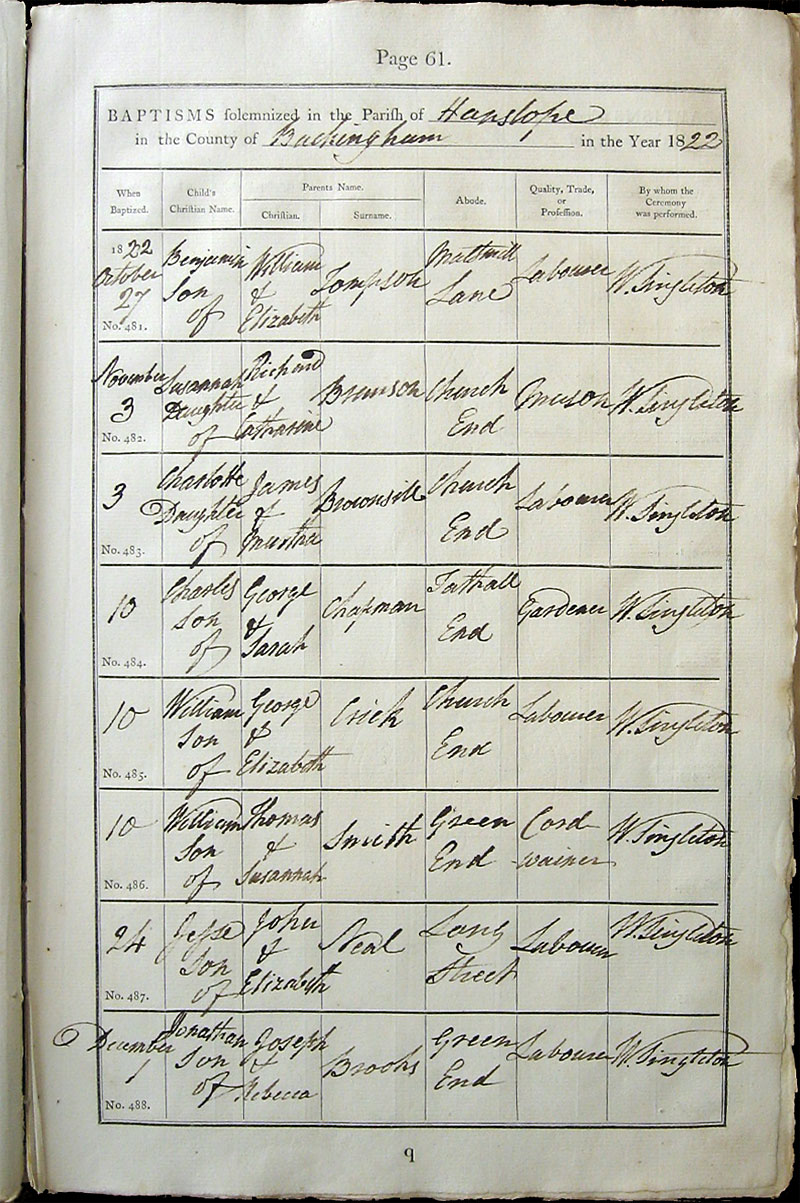 Page 61.
BAPTISMS solemnized in the Parish of Hanslope
in the County of Buckingham in the Year 1822
When Baptized. Child's Christian Name. Parents Name. Christian. Surname. Abode. Quality, Trade, or Profession. By whom the Ceremony was performed.
1822 October 27 No. 481. Benjamin Son of William & Elizabeth Tompson Lane Labourer W. Singleton
November 3 No. 482. Susannah Daughter of Richard & Catharine Branson Church End Mason W. Singleton
3 No. 483. Charlotte Daughter of James & Martha Brownsill Church End Labourer W. Singleton
10 No. 484. Charles Son of George & Sarah Chapman Tathall End Gardener W. Singleton
10 No. 485. William Son of George & Elizabeth Crick Church End Labourer W. Singleton
10 No. 486. William Son of Thomas & Susannah Smith Green End Cordwainer W. Singleton
24 No. 487. Jesse Son of John & Elizabeth Neal Long Street Labourer W. Singleton
December 1 No. 488. Jonathan Son of Joseph & Rebecca Brooks Green End Labourer W. Singleton
9